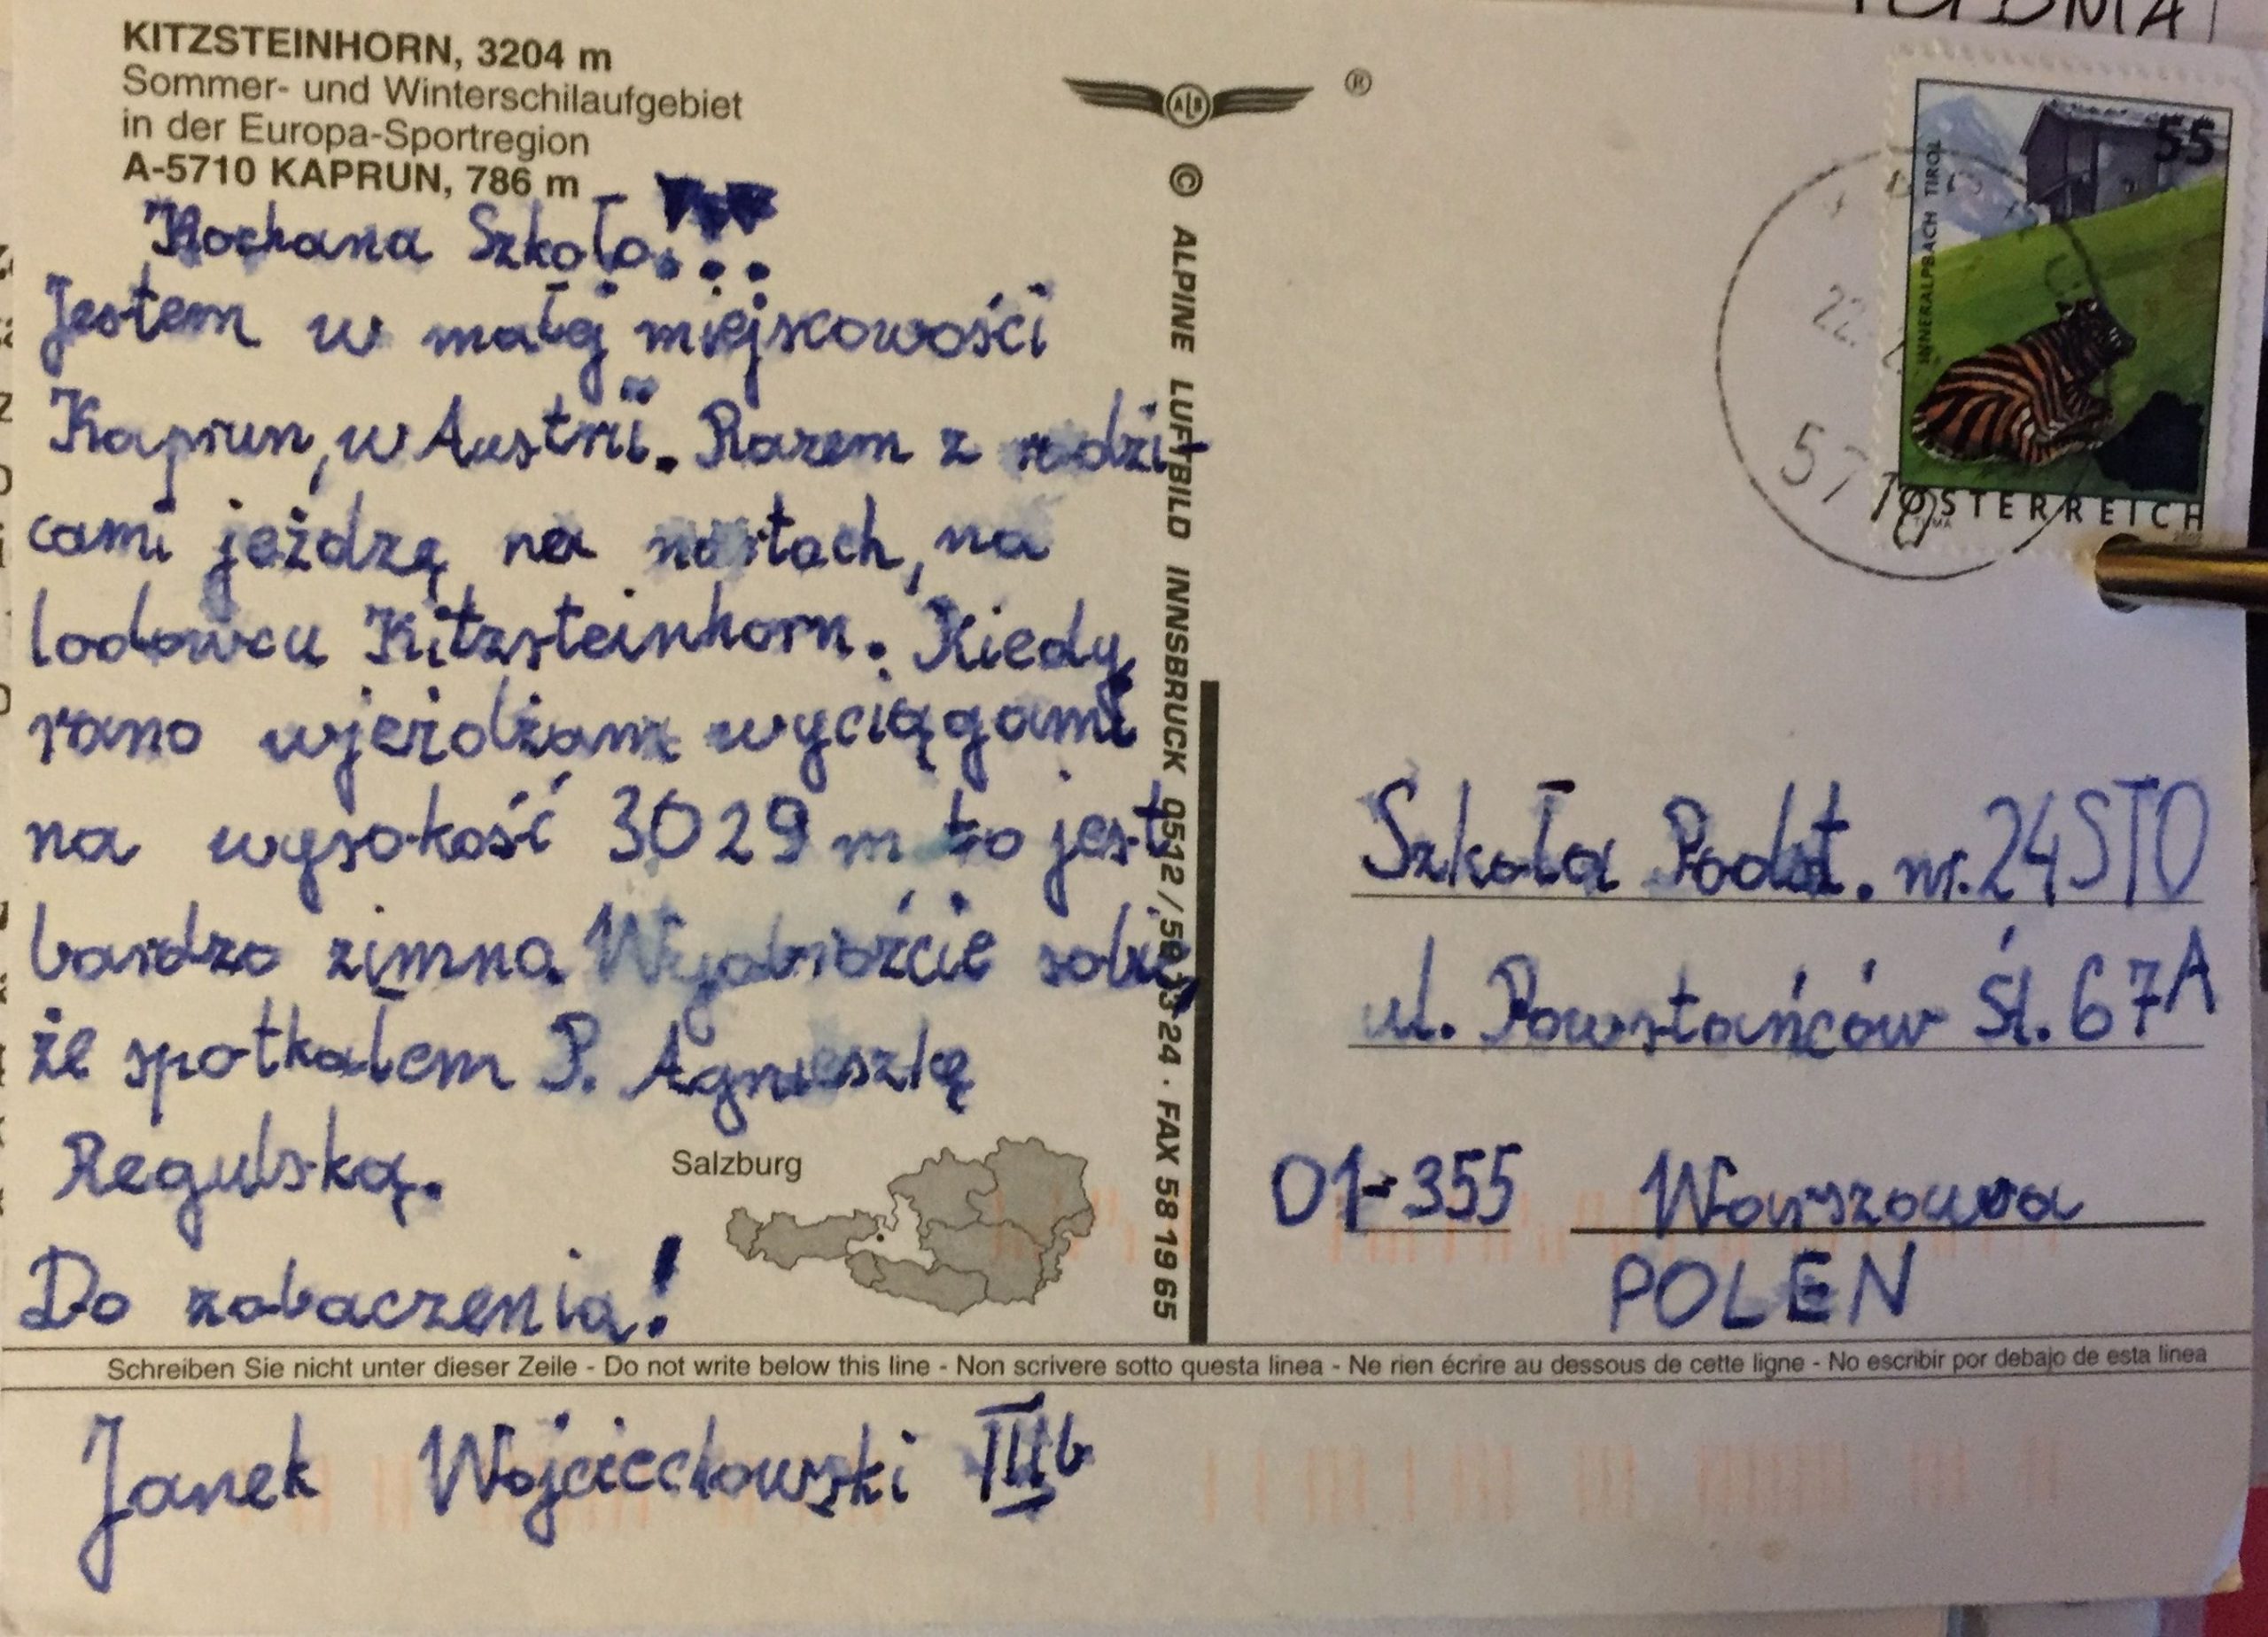 KITZSTEINHORN, 3204 m
Sommer- und Winterschilaufgebiet
in der Europa-Sportregion
A-5710 KAPRUN, 786 m
Kochana Szkoło!!!
Jestem w małej miejscowości
Kaprun, w Austrii. Razem z rodzi-
cami jeżdżę na nartach, na
lodowcu Kitzsteinhorn. Kiedy
rano wjeżdżam wyciągami
na wysokość 3029 m to jest
bardzo zimno. Wyobraźcie sobie,
że spotkałem P. Agnieszkę
Regulską.
Do zobaczenia!
Salzburg
ALB
®
© ALPINE LUFTBILD INNSBRUCK 0512 / 58 13 24 · FAX 58 19 65
INNERALPBACH TIROL
55
ÖSTERREICH
22.
5710
Szkoła Podst. nr. 24 STO
ul. Powstańców Śl. 67A
01-355 Warszawa
POLEN
Schreiben Sie nicht unter dieser Zeile - Do not write below this line - Non scrivere sotto questa linea - Ne rien écrire au dessous de cette ligne - No escribir por debajo de esta linea
Janek Wojciechowski III b